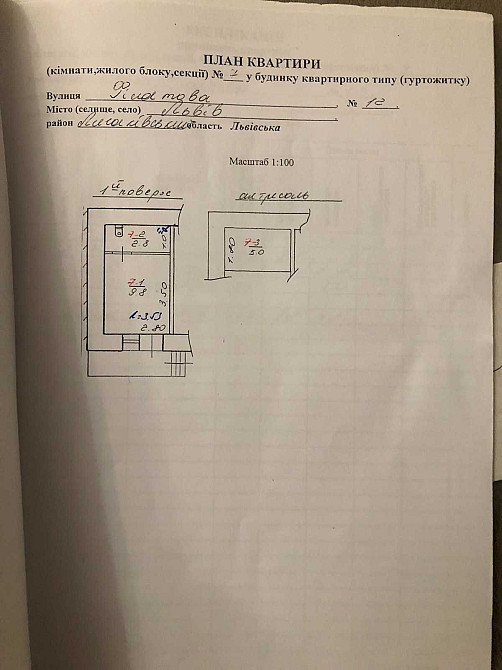 ПЛАН КВАРТИРИ
(кімнати,жилого блоку,секції) № 7 у будинку квартирного типу (гуртожитку)
Вулиця Філатова № 12
Місто (селище, село) Львів
район Личаківський область Львівська
Масштаб 1:100
1й поверх
антресоль
7-2
2.8
7-1
9.8
3.50
h=3.53
2.80
1.80
7-3
5.0